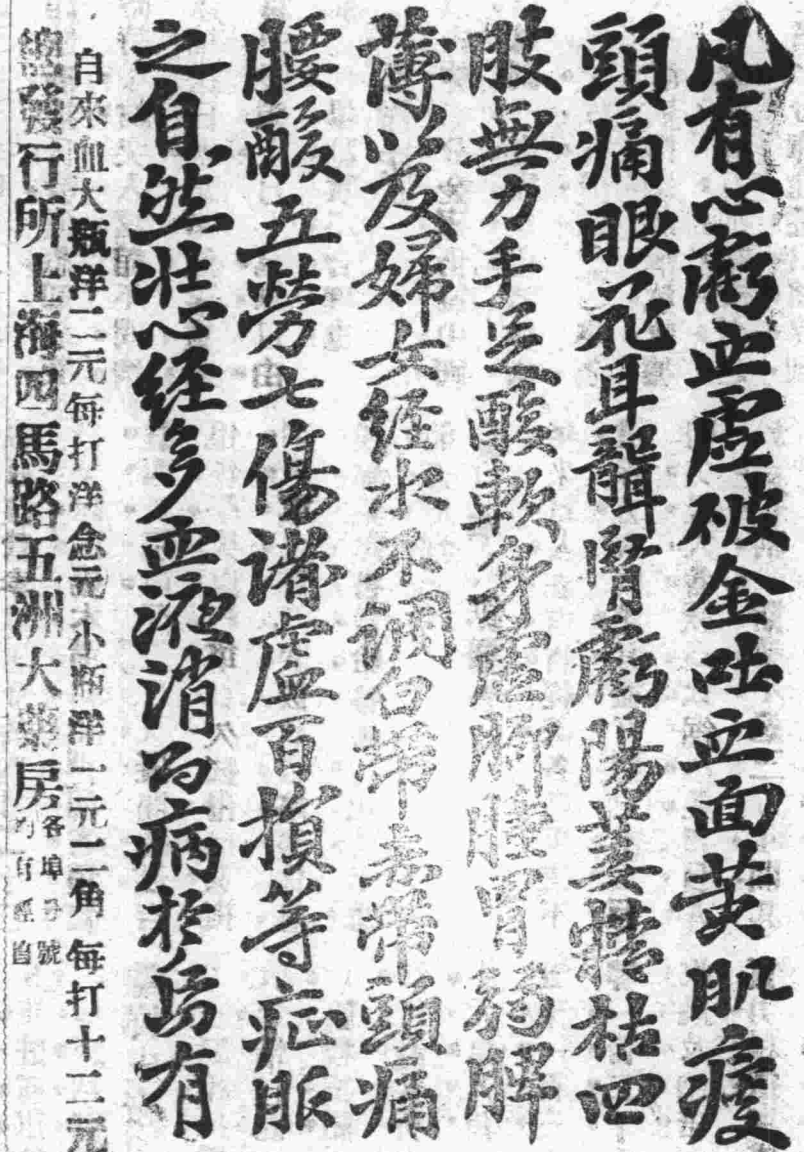 凡有心虧血虛破金吐血面黃肌瘦
頭痛眼花耳聾腎虧陽萎精枯四
肢無力手足酸軟身虛脚腫胃弱脾
薄以及婦女經水不調白帶赤帶頭痛
腰酸五勞七傷諸虛百損等症服
之自然壯心经多血液消为病於烏有
自來血大瓶洋二元每打洋念元小瓶洋一元二角每打十二元
總發行所上海四馬路五洲大藥房各埠分號均有經售